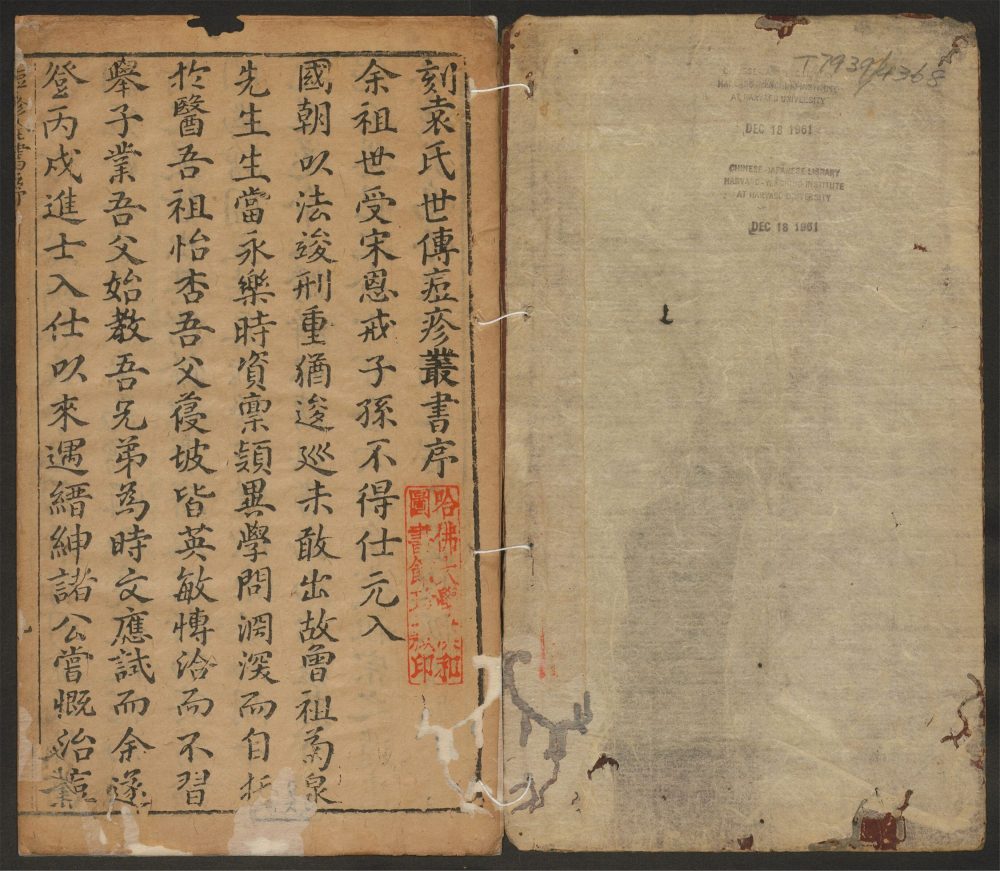 T7939/4368
AT HARVARD UNIVERSITY
DEC 18 1961
CHINESE-JAPANESE LIBRARY
HARVARD-YENCHING INSTITUTE
AT HARVARD UNIVERSITY
DEC 18 1961
刻袁氏世傳痘疹叢書序
哈佛大學
圖書館 印
余祖世受宋恩戒子孫不得仕元入
國朝以法竣刑重猶逡巡未敢出故曾祖菊泉
先生生當永樂時資稟頴異學問淵深而自托
於醫吾祖怡杏吾父葠坡皆英敏慱洽而不習
舉子業吾父始教吾兄弟為時文應試而余遂
登丙戌進士入仕以來遇縉紳諸公嘗慨治